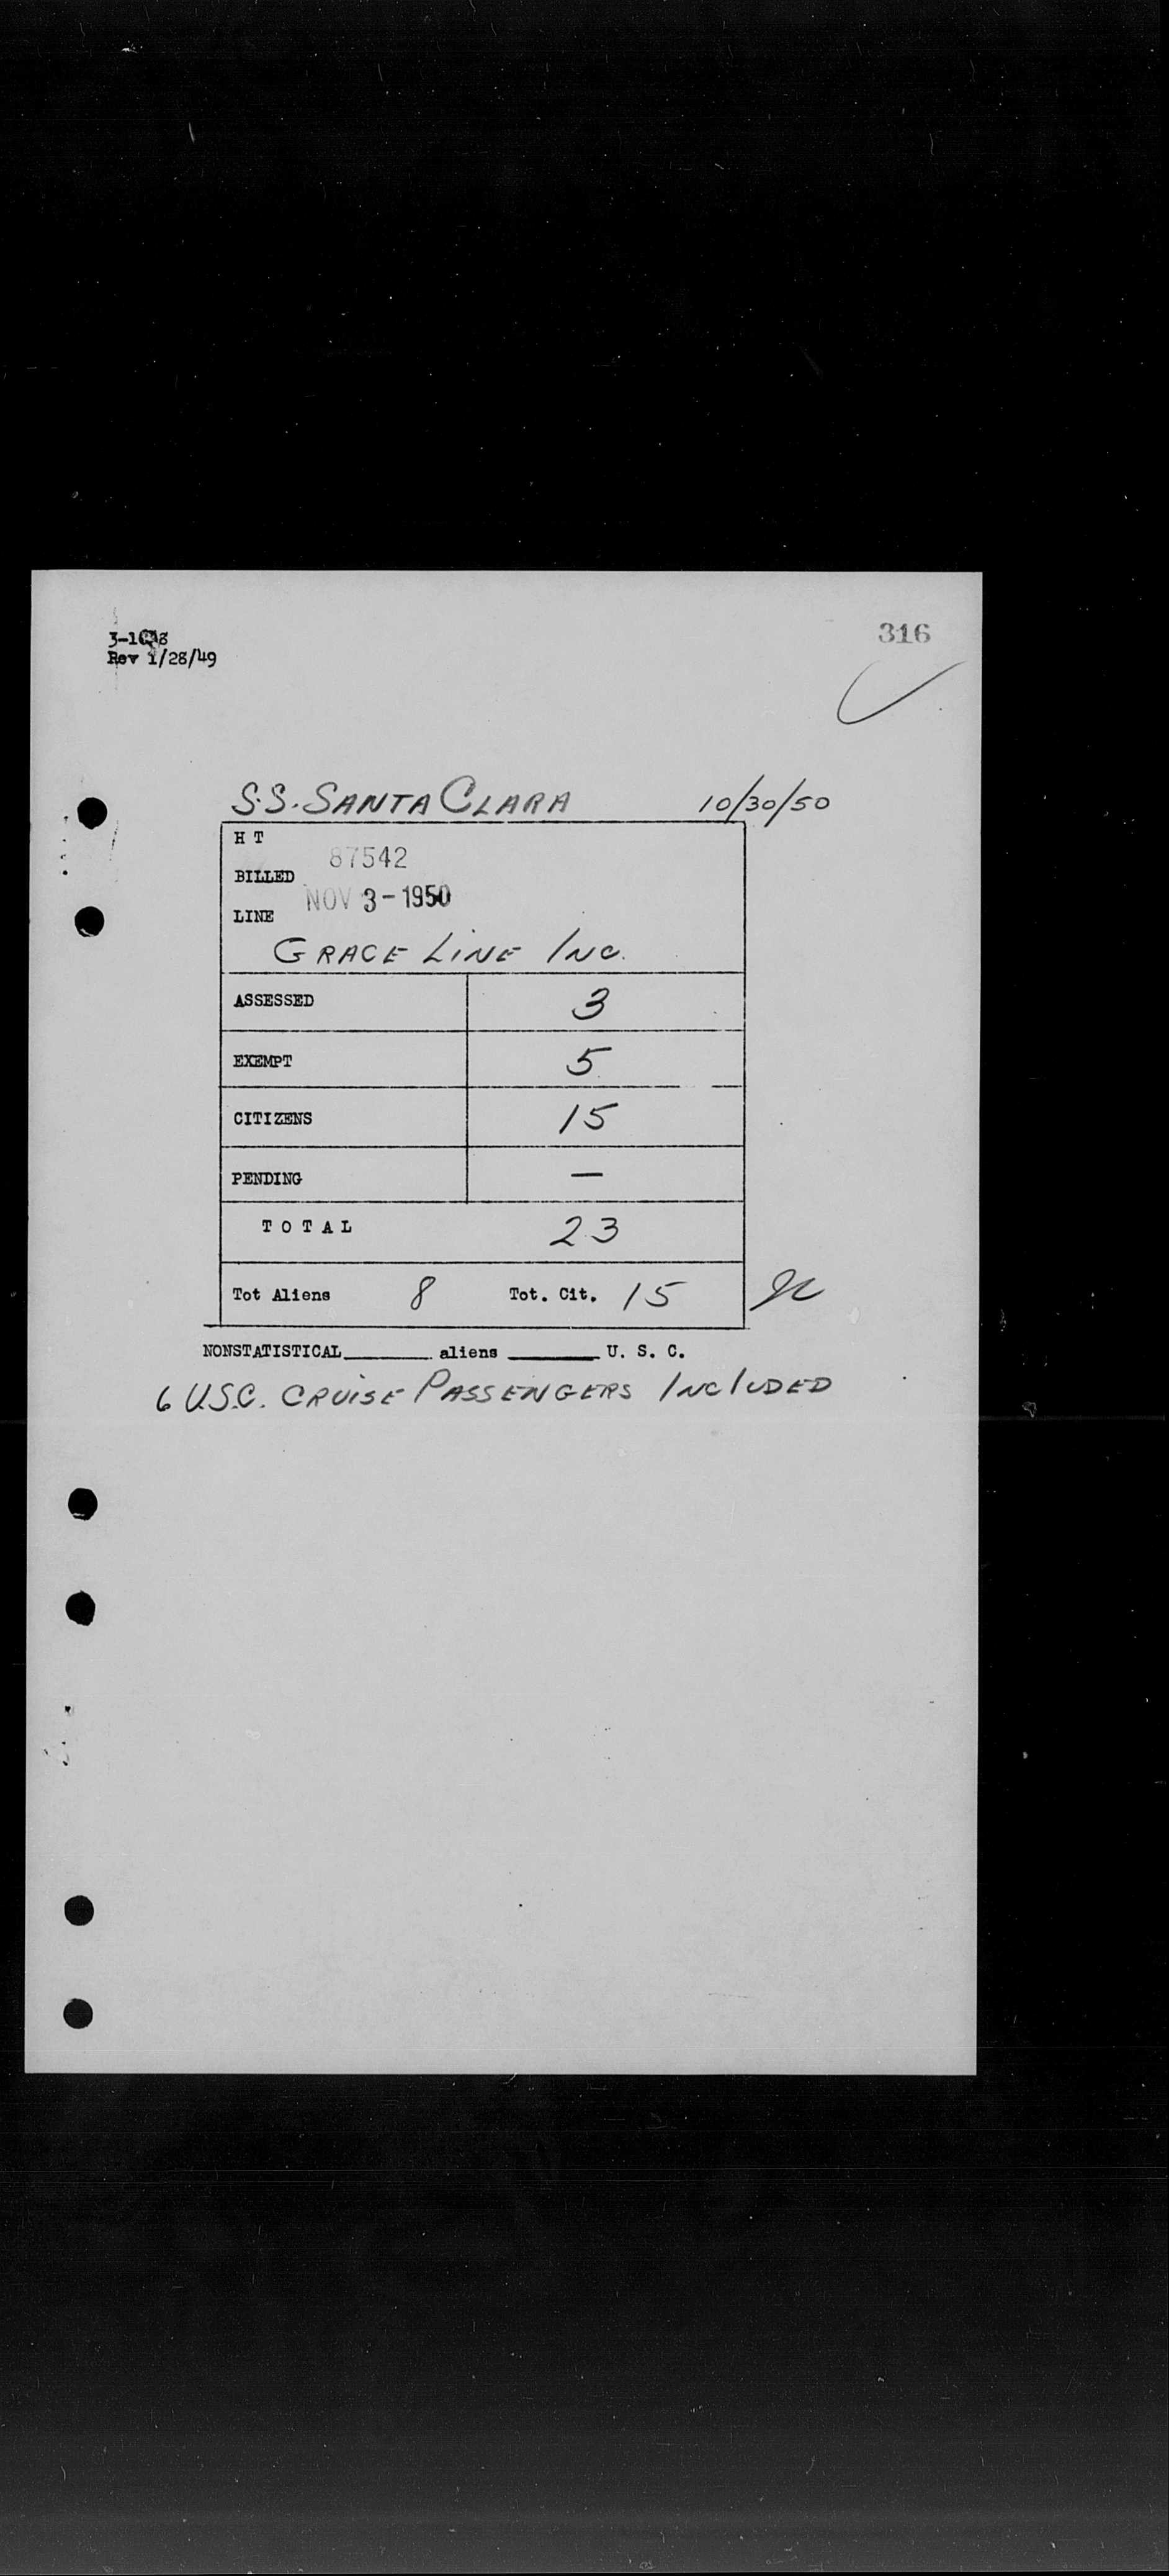 316
Rev 1/28/49
S.S. SANTA CLARA 10/30/50
H T
87542
BILLED
NOV 3-1950
LINE
GRACE LINE INC.
ASSESSED 3
EXEMPT 5
CITIZENS 15
PENDING —
TOTAL 23
Tot Aliens 8 Tot. Cit. 15
NONSTATISTICAL________ aliens ________ U. S. C.
6 U.S.C. CRUISE PASSENGERS INCLUDED